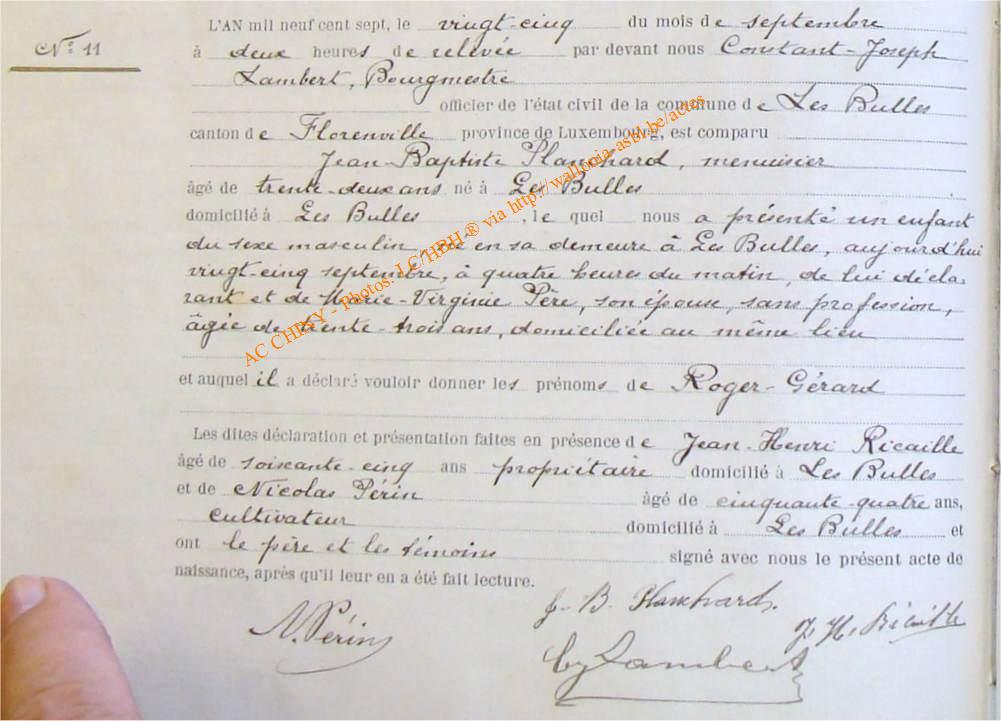 N° 11
L'AN mil neuf cent sept, le vingt-cinq du mois de septembre
à deux heures de relevée par devant nous Constant-Joseph
Lambert, Bourgmestre
officier de l'état civil de la commune de Les Bulles
canton de Florenville province de Luxembourg, est comparu
Jean-Baptiste Planchard, menuisier
âgé de trente-deux ans né à Les Bulles
domicilié à Les Bulles, le quel nous a présenté un enfant
du sexe masculin, né en sa demeure à Les Bulles, aujourd'hui
vingt-cinq septembre, à quatre heures du matin, de lui décla-
rant et de Marie-Virginie Père, son épouse, sans profession,
âgée de trente-trois ans, domiciliée au même lieu
et auquel il a déclaré vouloir donner les prénoms de Roger-Gérard
Les dites déclaration et présentation faites en présence de Jean-Henri Ricaille
âgé de soixante-cinq ans propriétaire domicilié à Les Bulles
et de Nicolas Périn âgé de cinquante-quatre ans,
cultivateur domicilié à Les Bulles et
ont le père et les témoins signé avec nous le présent acte de
naissance, après qu'il leur en a été fait lecture.
J. B. Planchard.
N. Périn J. H. Ricaille
Lambert
AC CHINY - Photos: LC/HBH ® via http://wallonia-asbl.be/actus